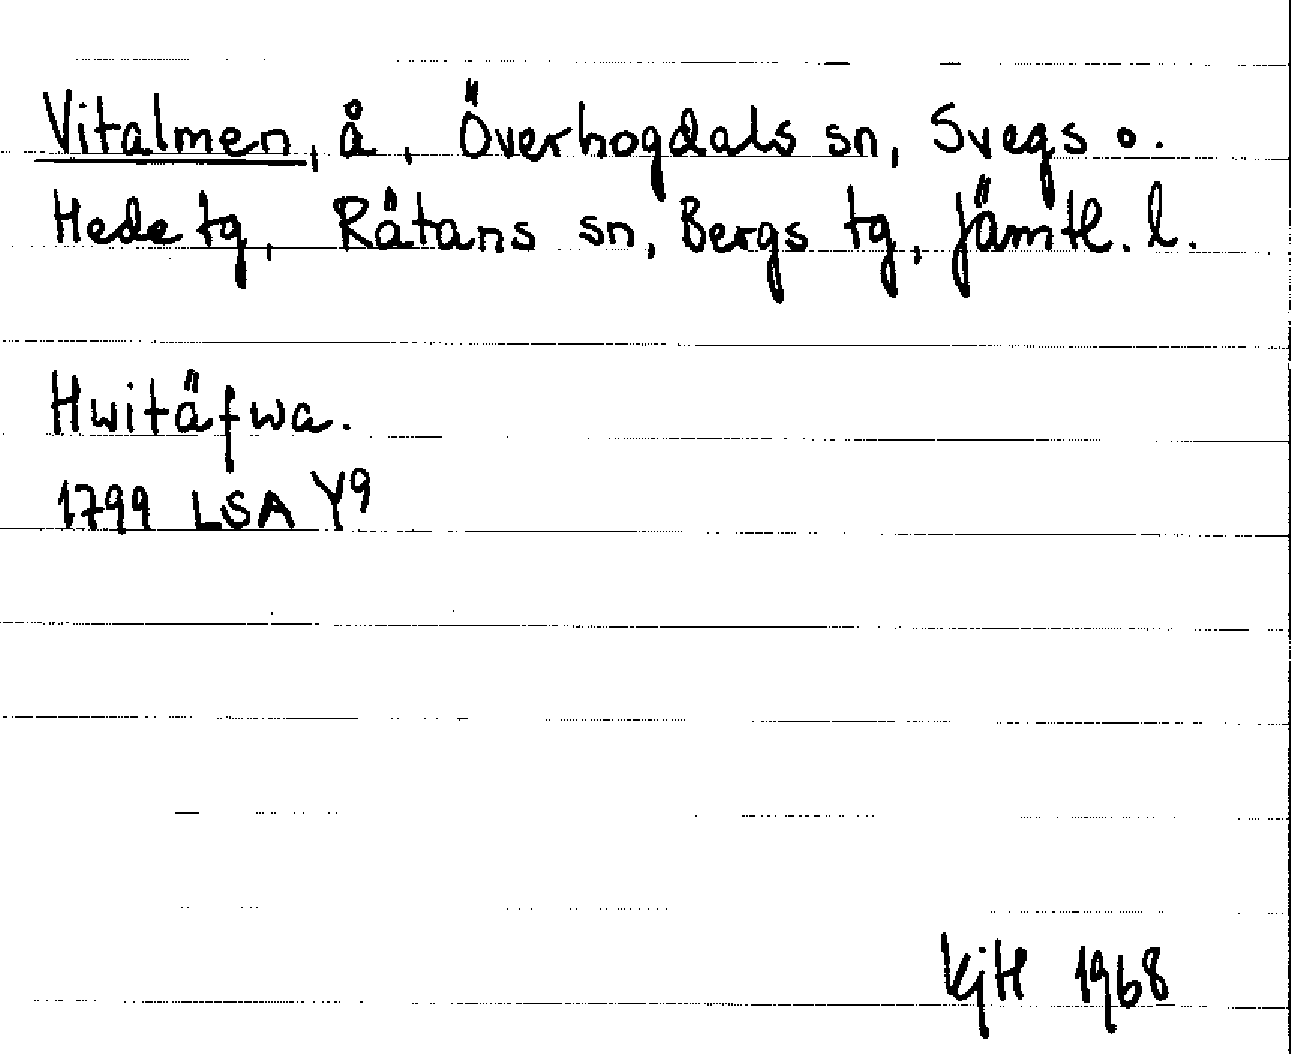 Vitalmen, å, Överhogdals sn, Svegs o.
Hede tg, Rätans sn, Bergs tg, Jämtl. l.
Hwitäfwa.
1799 LSA Y9
KjH 1968